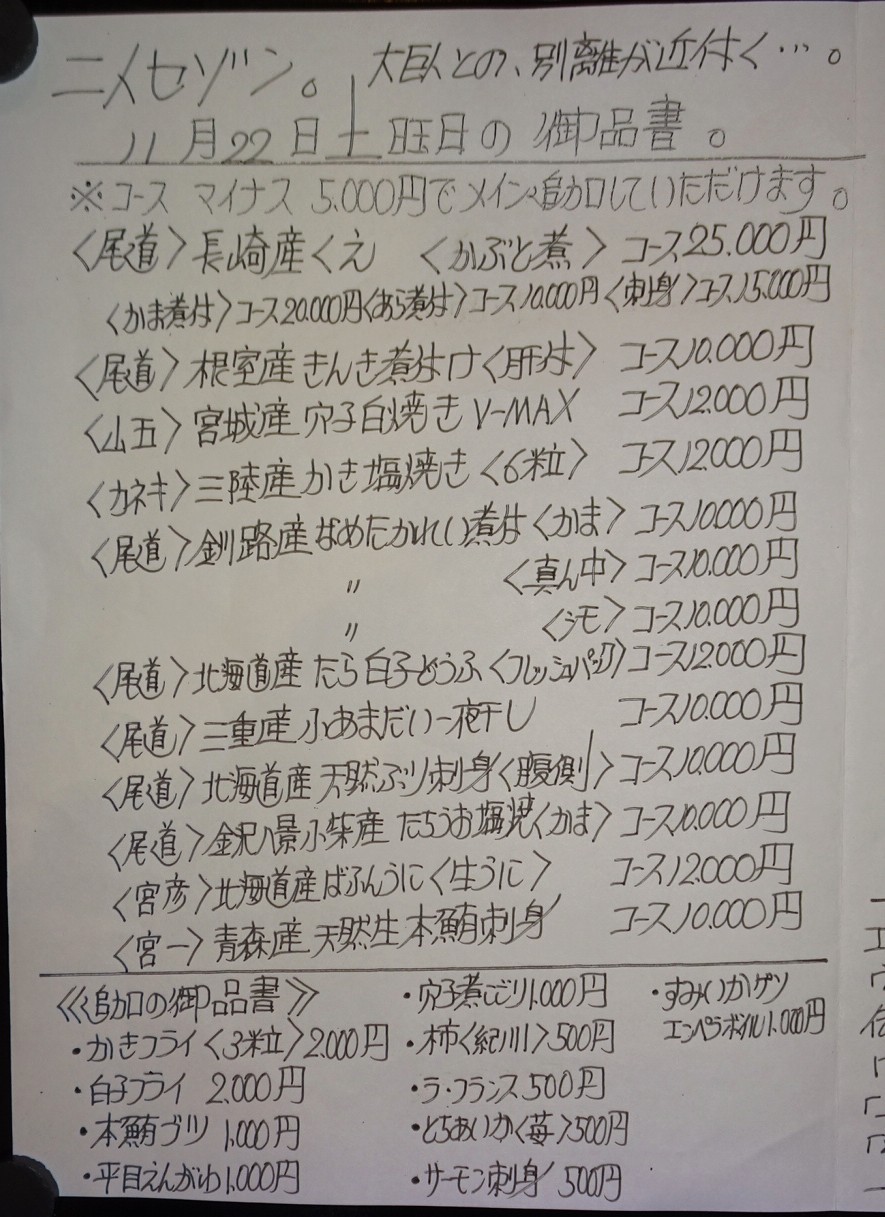 ニノセゾン。 大巨人との、別離が近付く…。
11月22日土曜日の御品書。
※コース マイナス 5.000円でメイン追加していただけます。
〈尾道〉長崎産くえ 〈かぶと煮〉 コース25.000円
〈かま煮付〉コース20.000円〈あら煮付〉コース10.000円〈刺身〉コース15.000円
〈尾道〉根室産きんき煮付け〈肝付〉 コース10.000円
〈山五〉宮城産穴子白焼きV-MAX コース12.000円
〈カネキ〉三陸産かき塩焼き〈6粒〉 コース12.000円
〈尾道〉釧路産なめたがれい煮付〈かま〉 コース10.000円
〃 〈真ん中〉コース10.000円
〃 〈シモ〉コース10.000円
〈尾道〉北海道産たら白子どうふ〈フレッシュパック〉コース12.000円
〈尾道〉三重産小あまだい一夜干し コース10.000円
〈尾道〉北海道産天然ぶり刺身〈腹側〉コース10.000円
〈尾道〉金沢八景小柴産たちうお塩焼〈かま〉コース10.000円
〈宮彦〉北海道産ばふんうに〈生うに〉 コース12.000円
〈宮一〉青森産天然生本鮪刺身 コース10.000円
《追加の御品書》
・かきフライ〈3粒〉2.000円
・白子フライ 2.000円
・本鮪ブツ 1.000円
・平目えんがわ1.000円
・穴子煮こごり1.000円
・柿〈紀ノ川〉500円
・ラ・フランス500円
・とちあいか〈苺〉500円
・サーモン刺身 500円
・すみいかゲソ
エンペラボイル1.000円